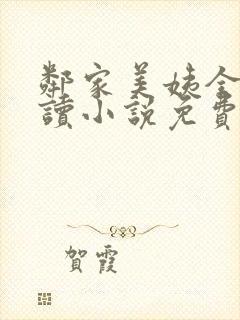 鄰家美姨全
讀小說免費
賀霞